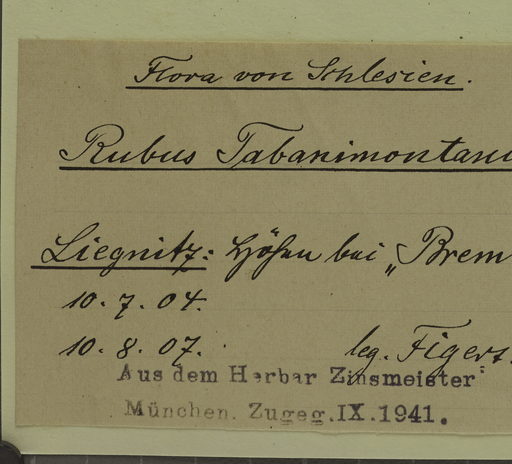 Flora von Schlesien.
Rubus Tabanimontanu
Liegnitz: Höhen bei „Brem
10. 7. 04.
10. 8. 07. leg. Figert.
Aus dem Herbar Zinsmeister
München. Zugeg. IX. 1941.